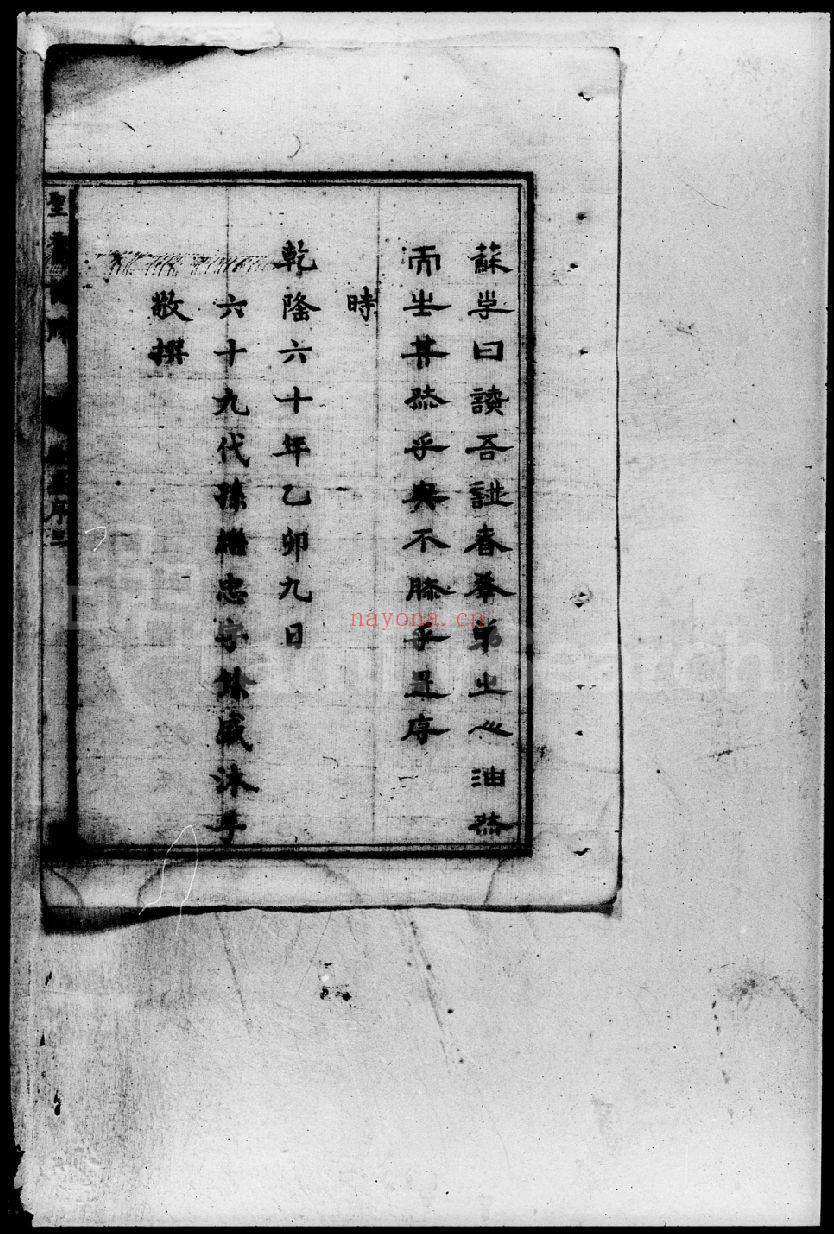 蘇子曰讀吾譜者孝弟之心油然
而生其然乎與不然乎是序
時
乾隆六十年乙卯九日
六十九代孫繼忠字餘感沐手
敬撰
nayona.cn